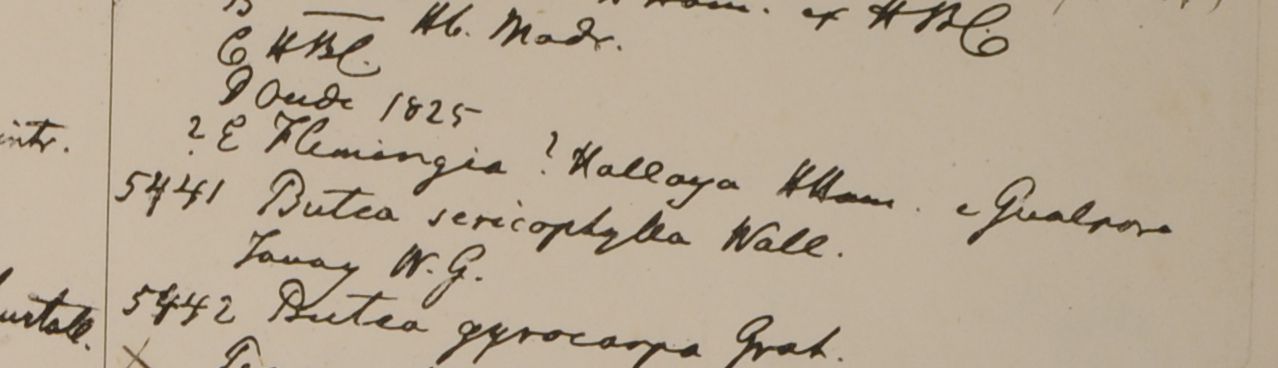 B ——— HHam. ex HBC.
Hb. Madr.
C HBC.
D Oude 1825
intr.
? E Flemingia ? Hallaya HHam. e Gualpora
5441 Butea sericophylla Wall.
Tavay W. G.
5442 Butea gyrocarpa Grah.